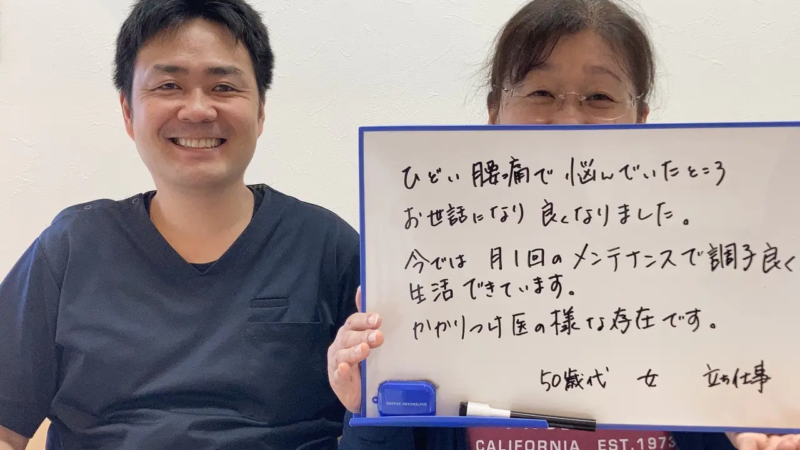 ひどい腰痛で悩んでいたところ
お世話になり良くなりました。
今では月1回のメンテナンスで調子良く
生活できています。
かかりつけ医の様な存在です。
50歳代 女 立ち仕事
CALIFORNIA EST.1973